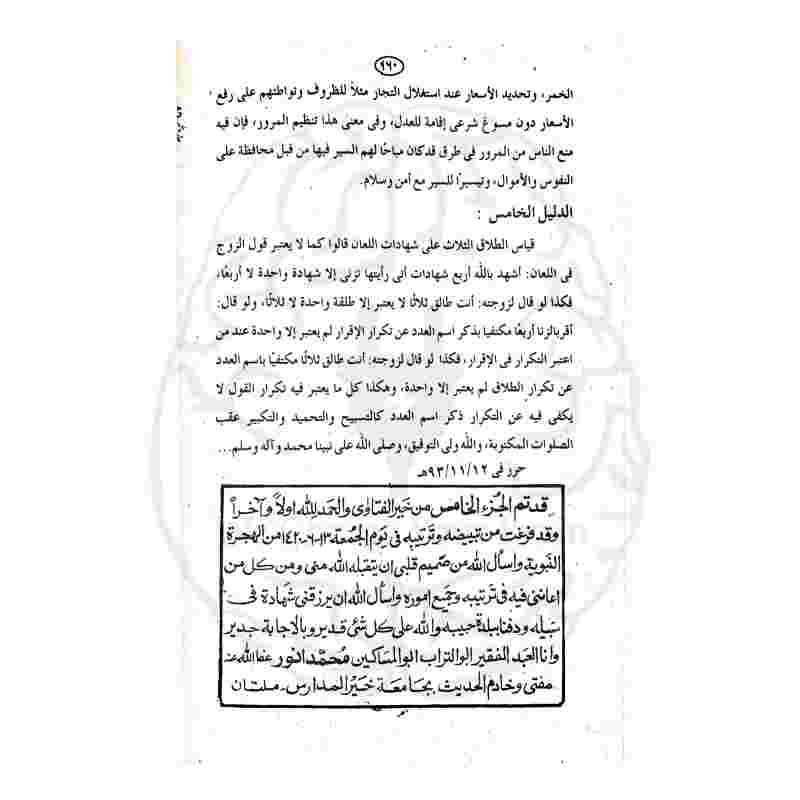 ٩٦٠
الخمر، وتحديد الأسعار عند استغلال التجار مثلاً للظروف وتواطئهم على رفع
الأسعار دون مسوغ شرعى إقامة للعدل، وفى معنى هذا تنظيم المرور، فإن فيه
منع الناس من المرور فى طرق قدكان مباحًا لهم السير فيها من قبل محافظة على
النفوس والأموال، وتيسيرًا للسير مع أمن وسلام.
الدليل الخامس :
قياس الطلاق الثلاث على شهادات اللعان قالوا كما لا يعتبر قول الزوج
فى اللعان: أشهد بالله أربع شهادات أنى رأيتها تزنى إلا شهادة واحدة لا أربعًا،
فكذا لو قال لزوجته: أنت طالق ثلاثًا لا يعتبر إلا طلقة واحدة لا ثلاثًا، ولو قال:
أقربالزنا أربعًا مكتفيا بذكر اسم العدد عن تكرار الإقرار لم يعتبر إلا واحدة عند من
اعتبر التكرار فى الإقرار، فكذا لو قال لزوجته: أنت طالق ثلاثًا مكتفيًا باسم العدد
عن تكرار الطلاق لم يعتبر إلا واحدة، وهكذا كل ما يعتبر فيه تكرار القول لا
يكفى فيه عن التكرار ذكر اسم العدد كالتسبيح والتحميد والتكبير عقب
الصلوات المكتوبة، والله ولى التوفيق، وصلى الله على نبينا محمد وآله وسلم...
حرر فى ٩٣/١١/١٢هـ
قد تم الجزء الخامس من خير الفتاوى والحمد لله اولاً وآخراً
وقد فرغت من تبييضه وترتيبه فى يوم الجمعة ١٣-٦-١٤٢٠ من الهجرة
النبوية واسأل الله من صميم قلبى ان يتقبله الله منى ومن كل من
اعاننى فيه فى ترتيبه وجميع اموره واسأل الله ان يرزقنى شهادة فى
سبيله ودفنا ببلدة حبيبه والله على كل شئ قدير وبالاجابة جدير
وانا العبد الفقير ابو التراب ابو المساكين محمد انور عفا الله عنه
مفتى وخادم الحديث بجامعة خير المدارس - ملتان